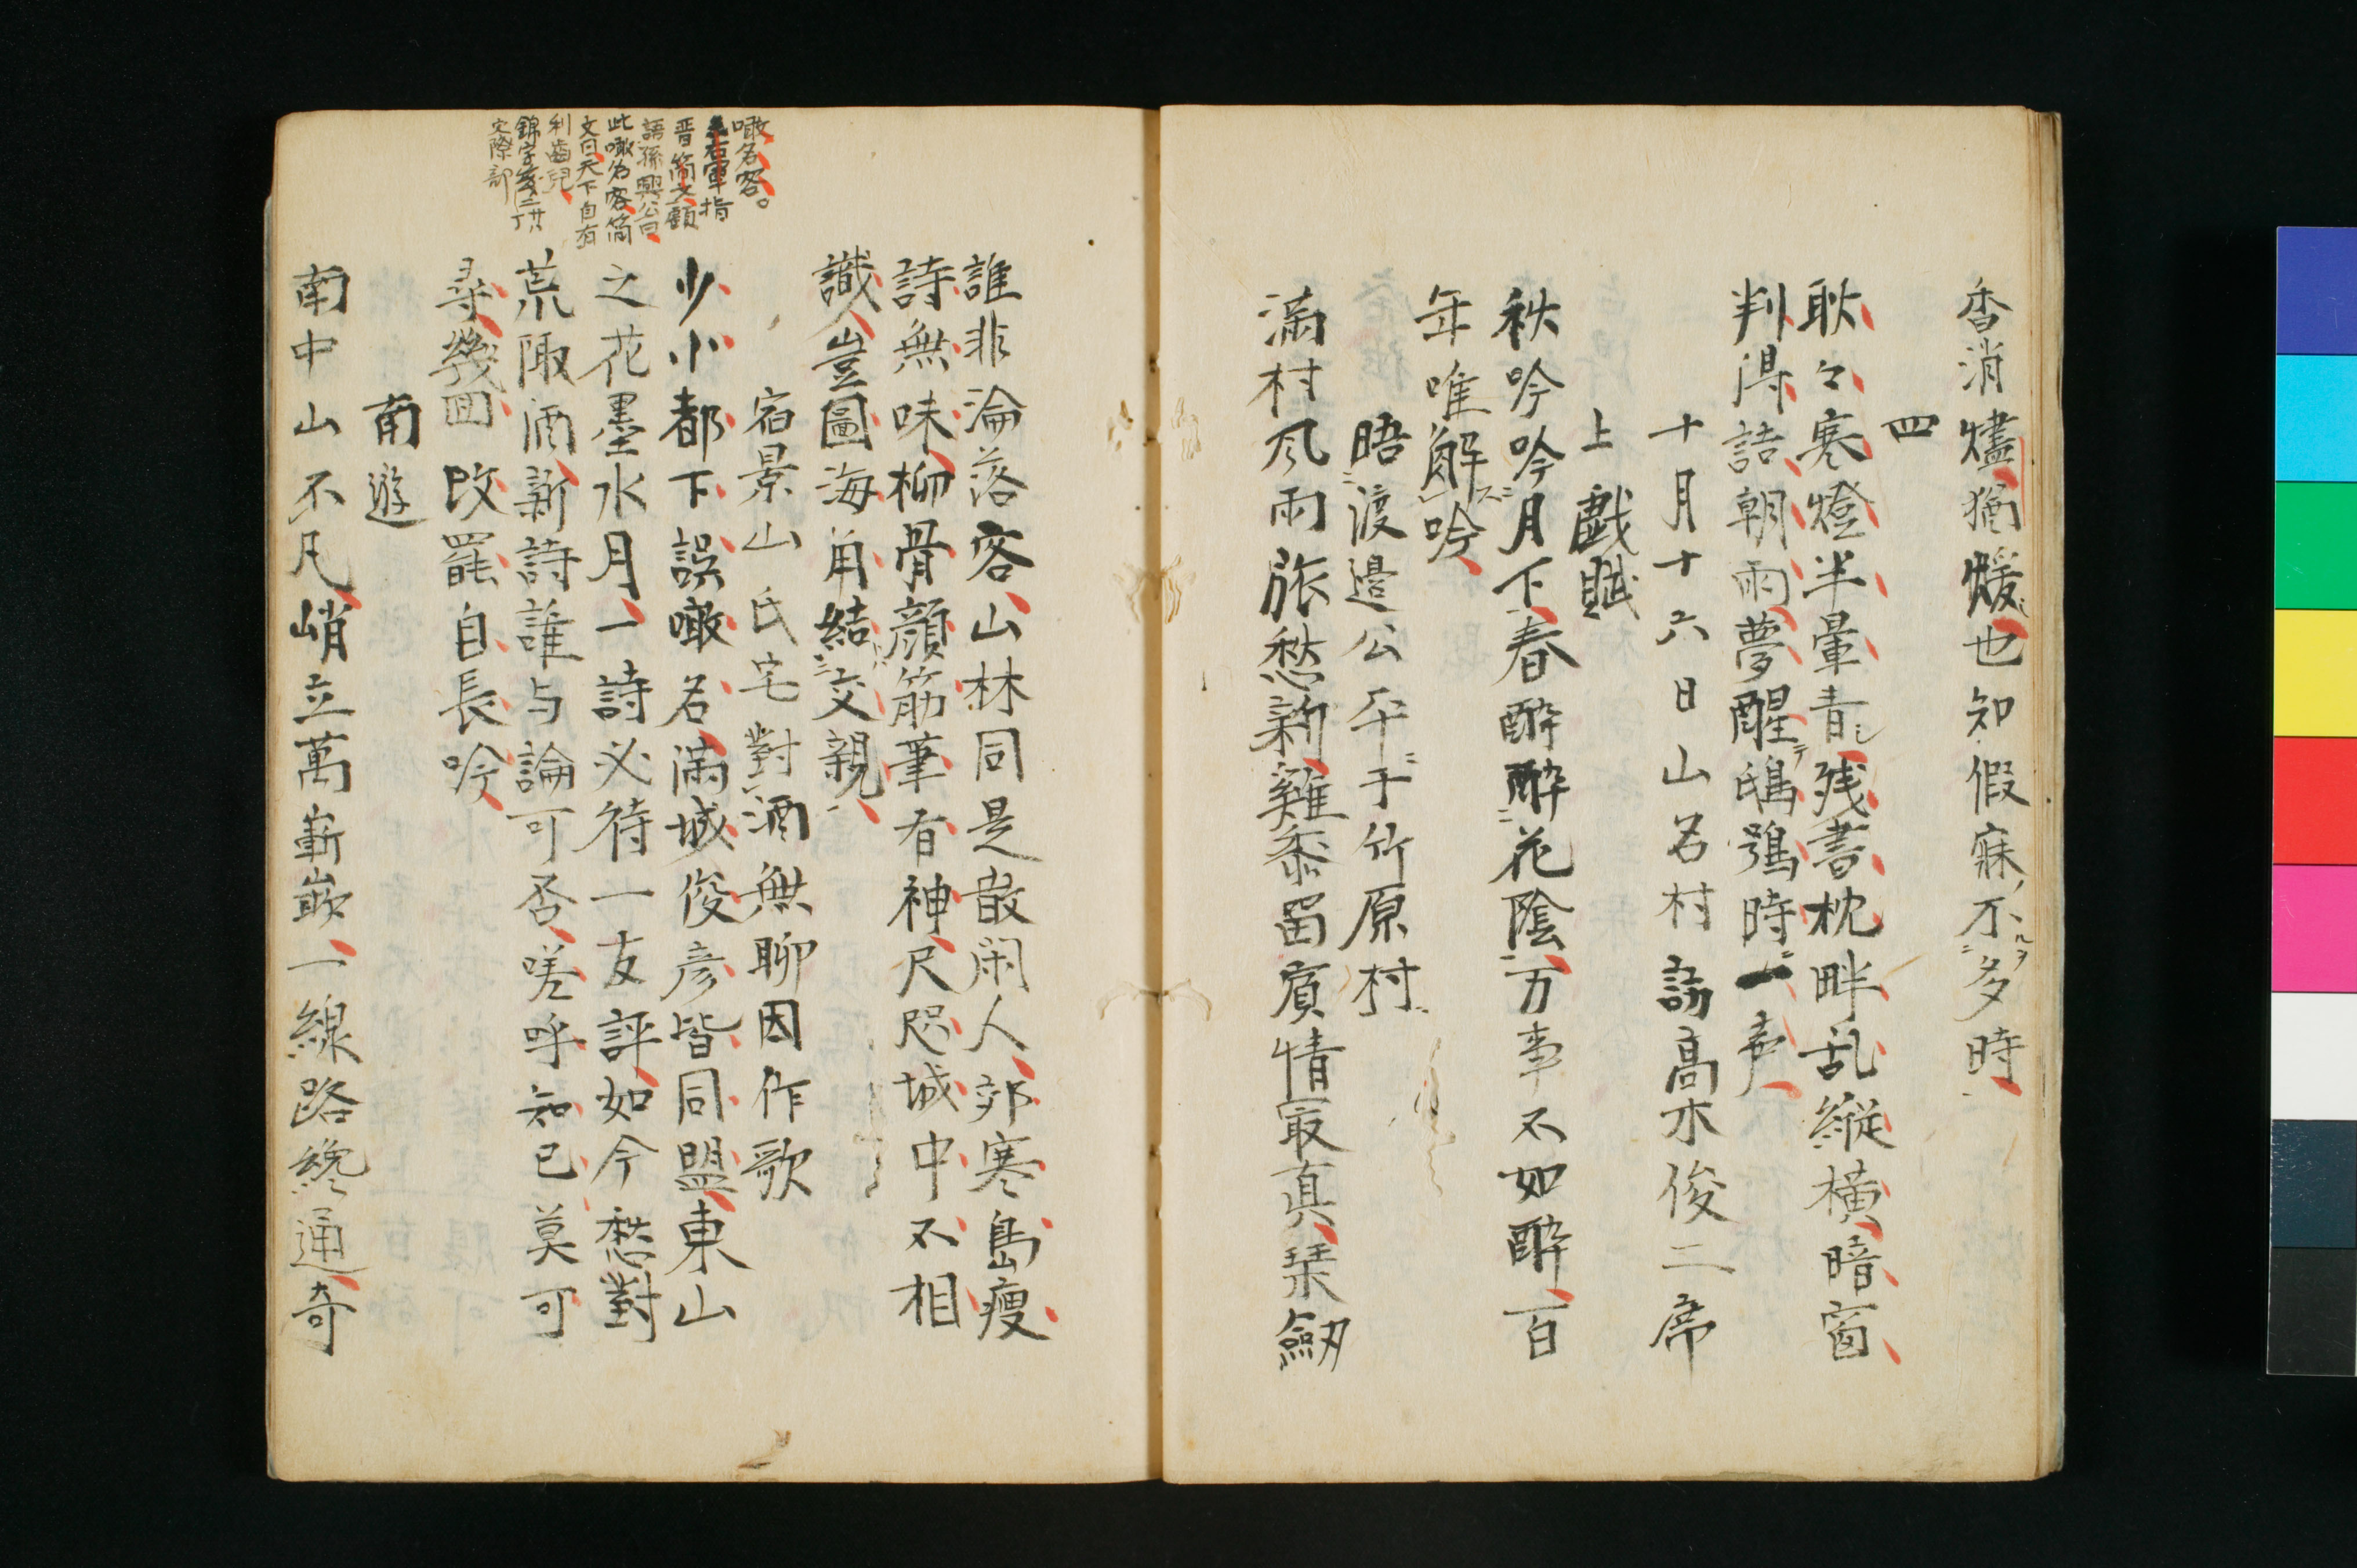 香消燼猶煖也知假寐不多時
四
耿々寒燈半暈青残書枕畔乱縦橫暗窗
判得詰朝雨夢醒鴟鴞時一声
十月十六日山名村訪髙木俊二席
上戯賦
秋吟吟月下春醉醉花陰万事不如醉百
年唯解吟
晤渡邉公平于竹原村
満村风雨旅愁新雞黍留賓情最真琹劔
誰非淪落客山林同是散閑人郊寒島瘦
詩無味柳骨顔筋筆有神尺咫城中不相
識豈圖海角結交親
宿景山氏宅對酒無聊因作歌
少小都下誤噉名満城俊彦皆同盟東山
之花墨水月一詩必待一友評如今愁對
荒陬酒新詩誰与論可否嗟呼知已莫可
尋幾囬改罷自長吟
南遊
南中山不凡峭立萬嶄嶔一線路纔通奇
噉名客。
王右軍指
晋簡文顧
語孫興公曰
此噉名客簡
文曰天下自有
利齒兒
錦字箋二廿丁
交際部